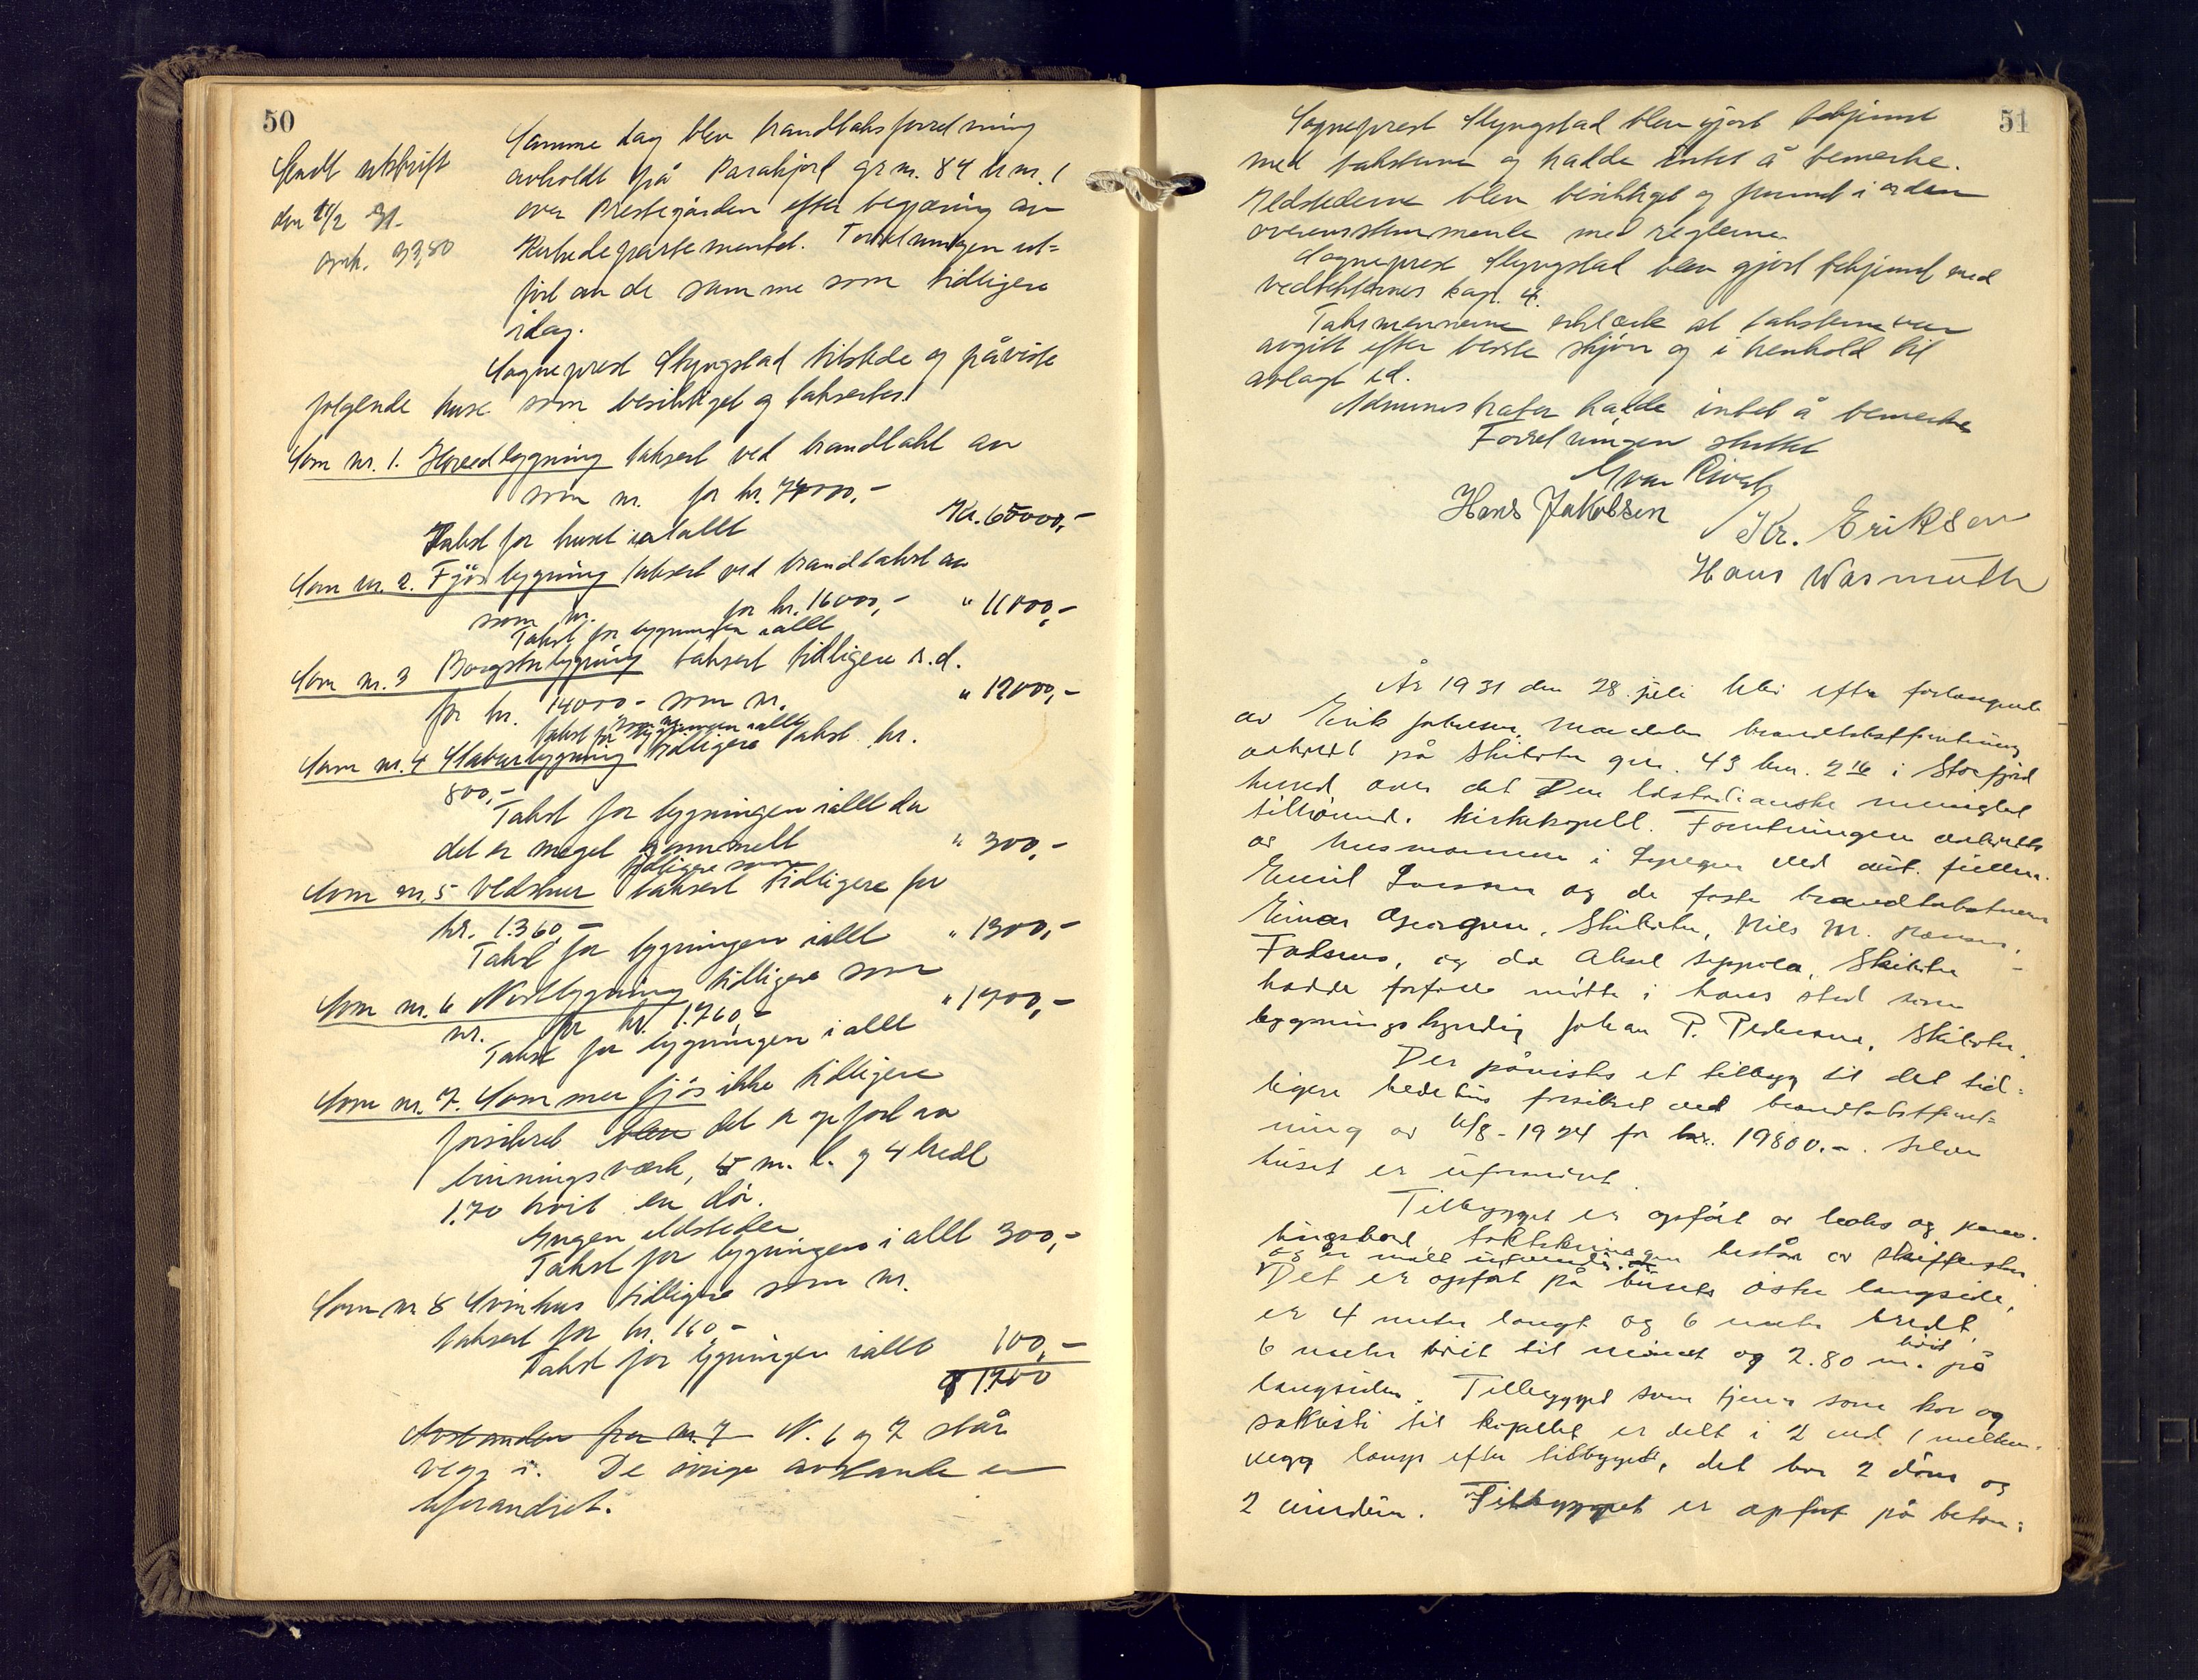 50
Sendt utskrift
den 11/2 31.
omk. 33,80
Samme dag blev brandtakstforretning
avholdt på Parakjord gr nr. 84 br nr. 1
over Prestegården efter begjæring av
Kirkedepartementet. Forretningen ut-
ført av de samme som tidligere
idag.
Sogneprest Skyngstad tilstede og påviste
følgende huse som besiktiget og takseertes:
Som nr. 1. Hovedbygning taksert ved brandtakst av
som nr. for kr. 74000.-
Takst for huset i alt Kr. 65000,-
Som nr. 2. Fjøsbygning taksert ved brandtakst av
som nr. for kr. 16000,- " 11000,-
Takst for bygningen i allt
Som nr. 3 Borgstubygning taksert tidligere s.d.
for kr. 14000- som nr. " 12000,-
Takst for bygningen i allt
Som nr. 4 Staburbygning tidligere takst kr.
800,-
Takst for bygningen i allt da
det er meget gammelt " 300,-
tidligere som
Som nr. 5 Vedskur taksert tidligere for
kr. 1.360,-
Takst for bygningen i allt " 1300,-
Som nr. 6 Nostbygning tidligere som
nr. for kr. 1.760,- " 1700,-
Takst for bygningen i allt
Som nr. 7. Sommerfjøs ikke tidligere
forsikret blev det er opført av
binningsverk, 5 m. l. og 4 bredt
1.70 høit en dør.
Ingen ildsteder
Takst for bygningen i allt 300,-
Som nr 8 Svinhus tidligere som nr.
taksert for kr. 160,-
Takst for bygningen i allt 100,-
91700
Avstanden fra nr. 7 N. 6 og 7 står
vegg i. De øvrige avstande er
uforandret.
51
Sogneprest Skyngstad blev gjort bekjent
med taksterne og hadde intet å bemerke.
Ildstederne blev besiktiget og funnet i orden
overensstemmende med reglerne.
Sogneprest Skyngstad blev gjort bekjent med
vedtekternes kap. 4.
Taksmennene erklærte at taksterne var
avgitt efter beste skjøn og i henhold til
avlagt ed.
Administrator hadde intet å bemerke
Forretningen sluttet
Hans Jakobsen Kr. Eriksen
Hans Wasmuth
År 1931 den 28. juli blev efter forlangende
av Erik Johnsen, Mandalen brandtakstforretning
avholdt på Skibotn gnr. 43 bnr. 2 16 i Storfjord
herred over det Den læstadianske menighet
tilhørende kirkekapell. Forretningen avholdtes
av husmannen i Lyngen ved aut. fullm.
Emil Larsen og de faste brandtakstmenn
Einar Georgsen, Skibotn, Nils M. Hansen,
Falsnes, og da Aksel Seppola, Skibotn
hadde forfall møtte i hans sted som
bygningskyndig Johan P. Pedersen, Skibotn.
Der påvistes et tilbygg til det tid-
ligere bedehus forsikret ved brandtakstforret-
ning av 11/8-1924 for kr. 19800.-. Selve
huset er uforandret.
Tilbygget er opført av laks og panel-
ingsbord, taktekningen består av skifferstein
og er malt utvendig.
Det er opført på husets østre langside,
er 4 meter langt og 6 meter bredt,
6 meter høit til mønet og 2.80 m. høit på
langsiden. Tilbygget som tjener som kor og
sakristi til kapellet er delt i 2 ved 1 mellem-
vegg langs efter tilbygget, det har 2 dører og
2 vinduer. Tilbygget er opført på beton-